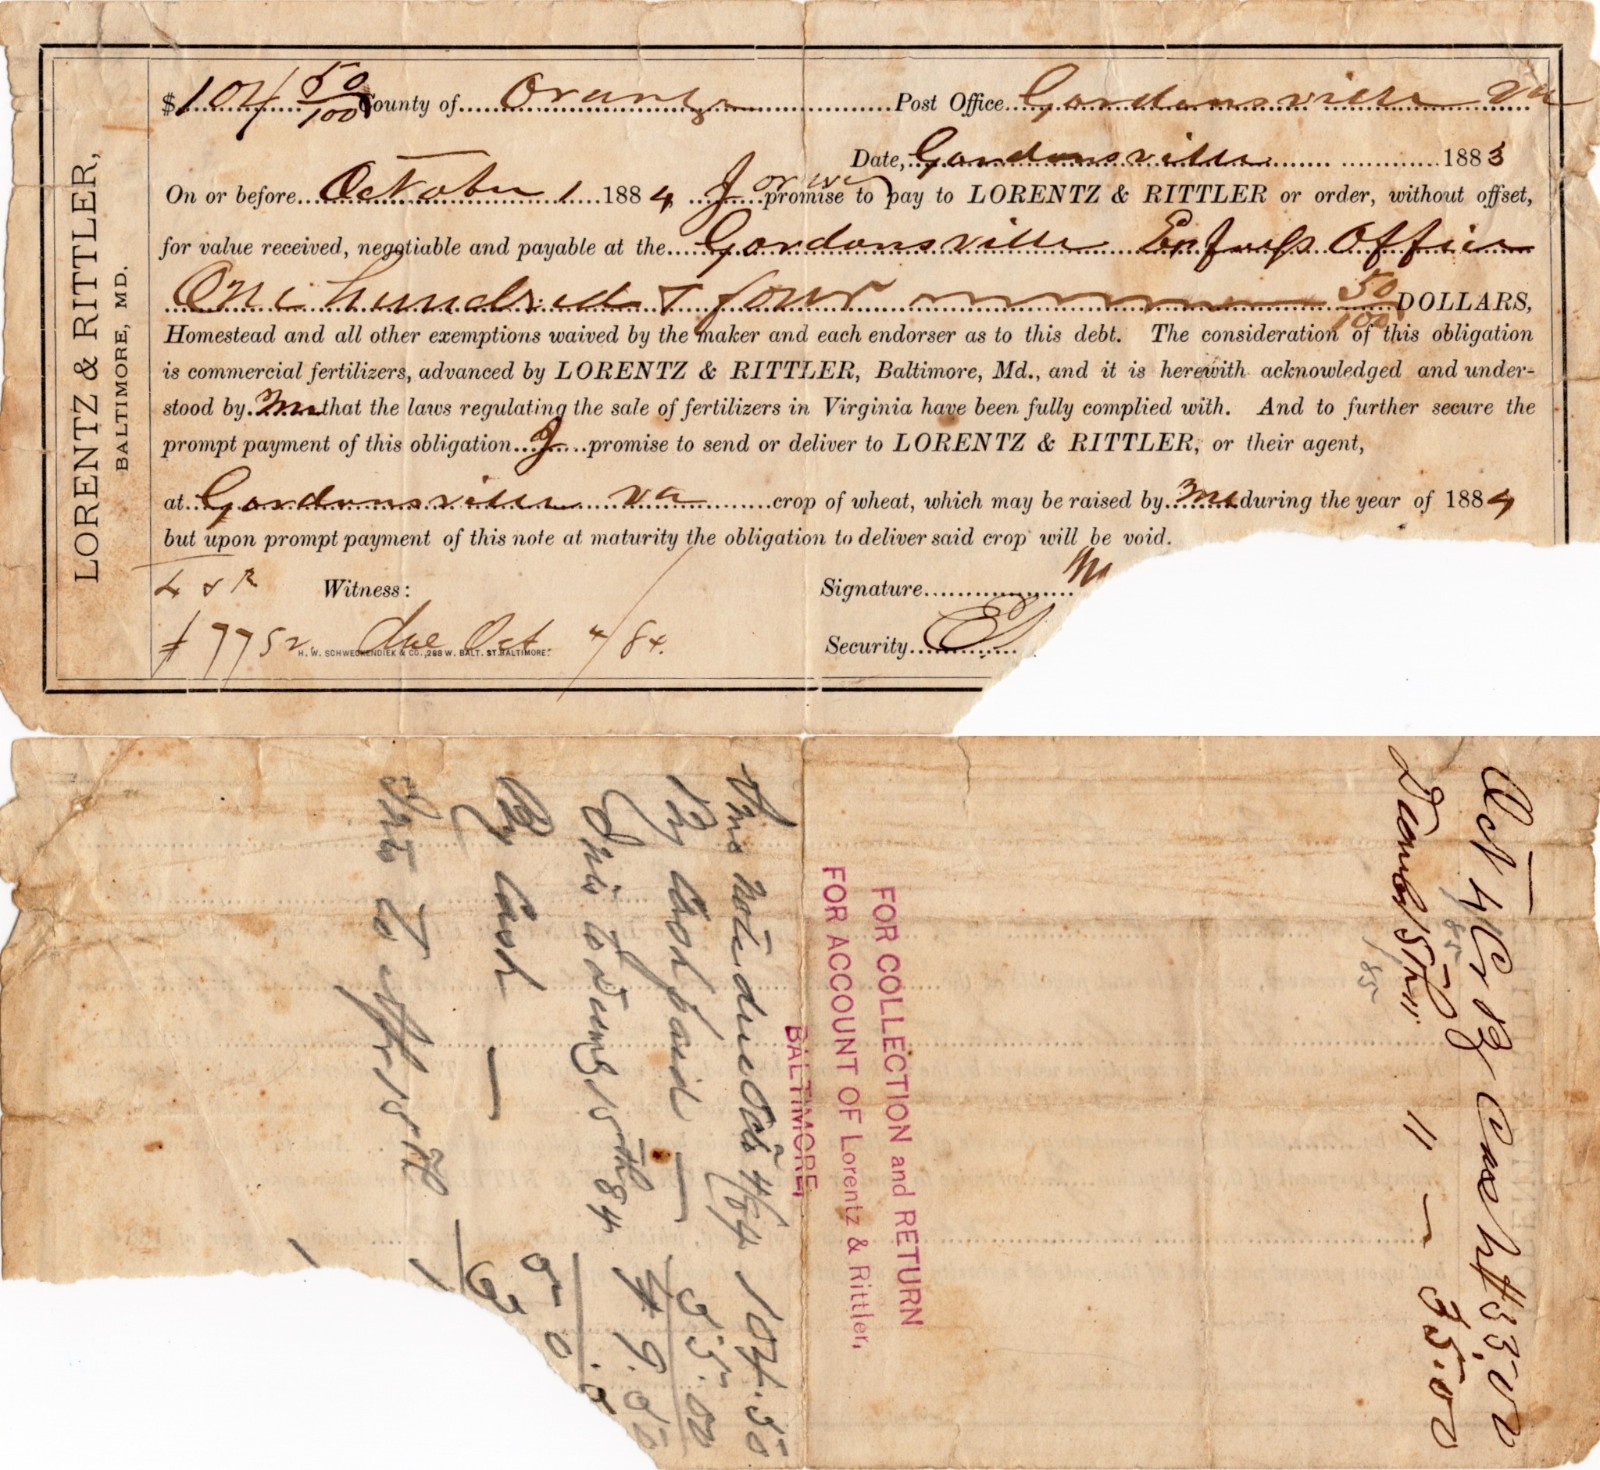 LORENTZ & RITTLER,
BALTIMORE, MD.
$104 50/100 County of Orange Post Office Gordonsville Va
Date, Gordonsville 1883
On or before October 1 1884 I or we promise to pay to LORENTZ & RITTLER or order, without offset,
for value received, negotiable and payable at the Gordonsville Express Office
One hundred & four 50/100 DOLLARS,
Homestead and all other exemptions waived by the maker and each endorser as to this debt. The consideration of this obligation
is commercial fertilizers, advanced by LORENTZ & RITTLER, Baltimore, Md., and it is herewith acknowledged and under-
stood by me that the laws regulating the sale of fertilizers in Virginia have been fully complied with. And to further secure the
prompt payment of this obligation I promise to send or deliver to LORENTZ & RITTLER, or their agent,
at Gordonsville Va crop of wheat, which may be raised by me during the year of 1884
but upon prompt payment of this note at maturity the obligation to deliver said crop will be void.
L & R Witness: Signature
7752 due Oct 4/84. Security
H. W. SCHWECKENDIEK & CO., 288 W. BALT. ST. BALTIMORE.
Oct 4/85 Cr By Cash $35.00
/85 " - 35.00
FOR COLLECTION and RETURN
FOR ACCOUNT OF Lorentz & Rittler,
BALTIMORE
This note due Oct 4/84 104.50
By Cash paid —
15th 84
By Cash —
Int to 15th